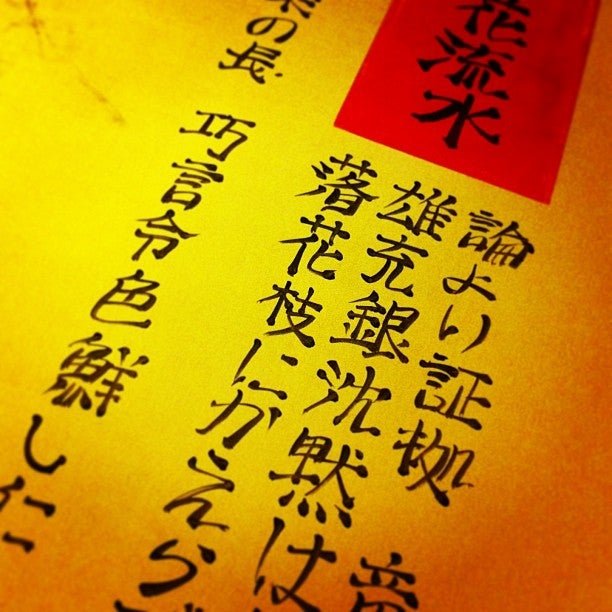 花流水
論より証拠
雄充銀沈黙は
落花枝にかえら
巧言令色鮮し仁
の長